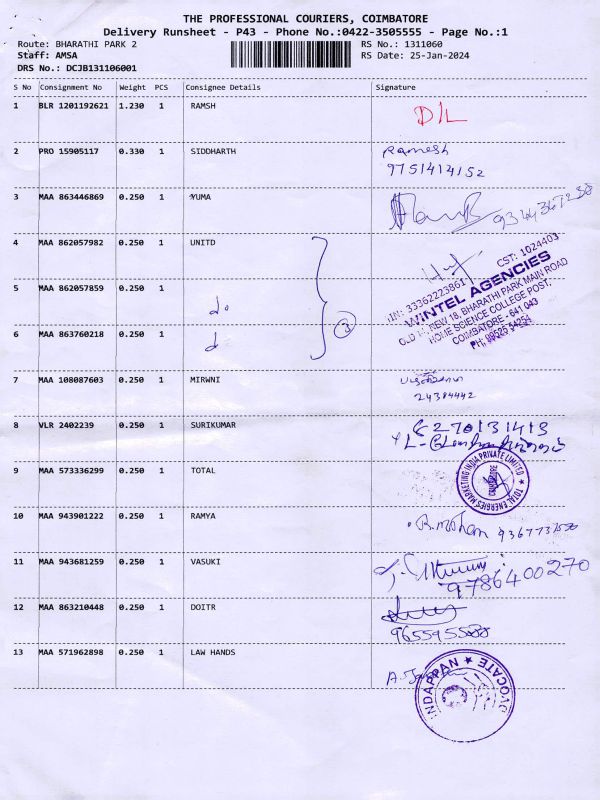 THE PROFESSIONAL COURIERS, COIMBATORE
Delivery Runsheet - P43 - Phone No.:0422-3505555 - Page No.:1
Route: BHARATHI PARK 2 RS No.: 1311060
Staff: AMSA RS Date: 25-Jan-2024
DRS No.: DCJB131106001
S No Consignment No Weight PCS Consignee Details Signature
1 BLR 1201192621 1.230 1 RAMSH D/L
2 PRO 15905117 0.330 1 SIDDHARTH Ramesh
9751414152
3 MAA 863446869 0.250 1 YUMA 9344367238
4 MAA 862057982 0.250 1 UNITD
5 MAA 862057859 0.250 1 do
6 MAA 863760218 0.250 1 d 3
CST: 1024403
TIN: 33362223861
WINTEL AGENCIES
OLD 11, NEW 18, BHARATHI PARK MAIN ROAD
HOME SCIENCE COLLEGE POST,
COIMBATORE - 641 043
PH: 99525 54254
7 MAA 108087603 0.250 1 MIRWNI
24384442
8 VLR 2402239 0.250 1 SURIKUMAR 8270131413
9 MAA 573336299 0.250 1 TOTAL
TOTAL ENERGIES MARKETING INDIA PRIVATE LIMITED
COIMBATORE
10 MAA 943901222 0.250 1 RAMYA R. Mohan
11 MAA 943681259 0.250 1 VASUKI
9786400270
12 MAA 863210448 0.250 1 DOITR
13 MAA 571962898 0.250 1 LAW HANDS
INDAPPAN ★ ADVOCATE